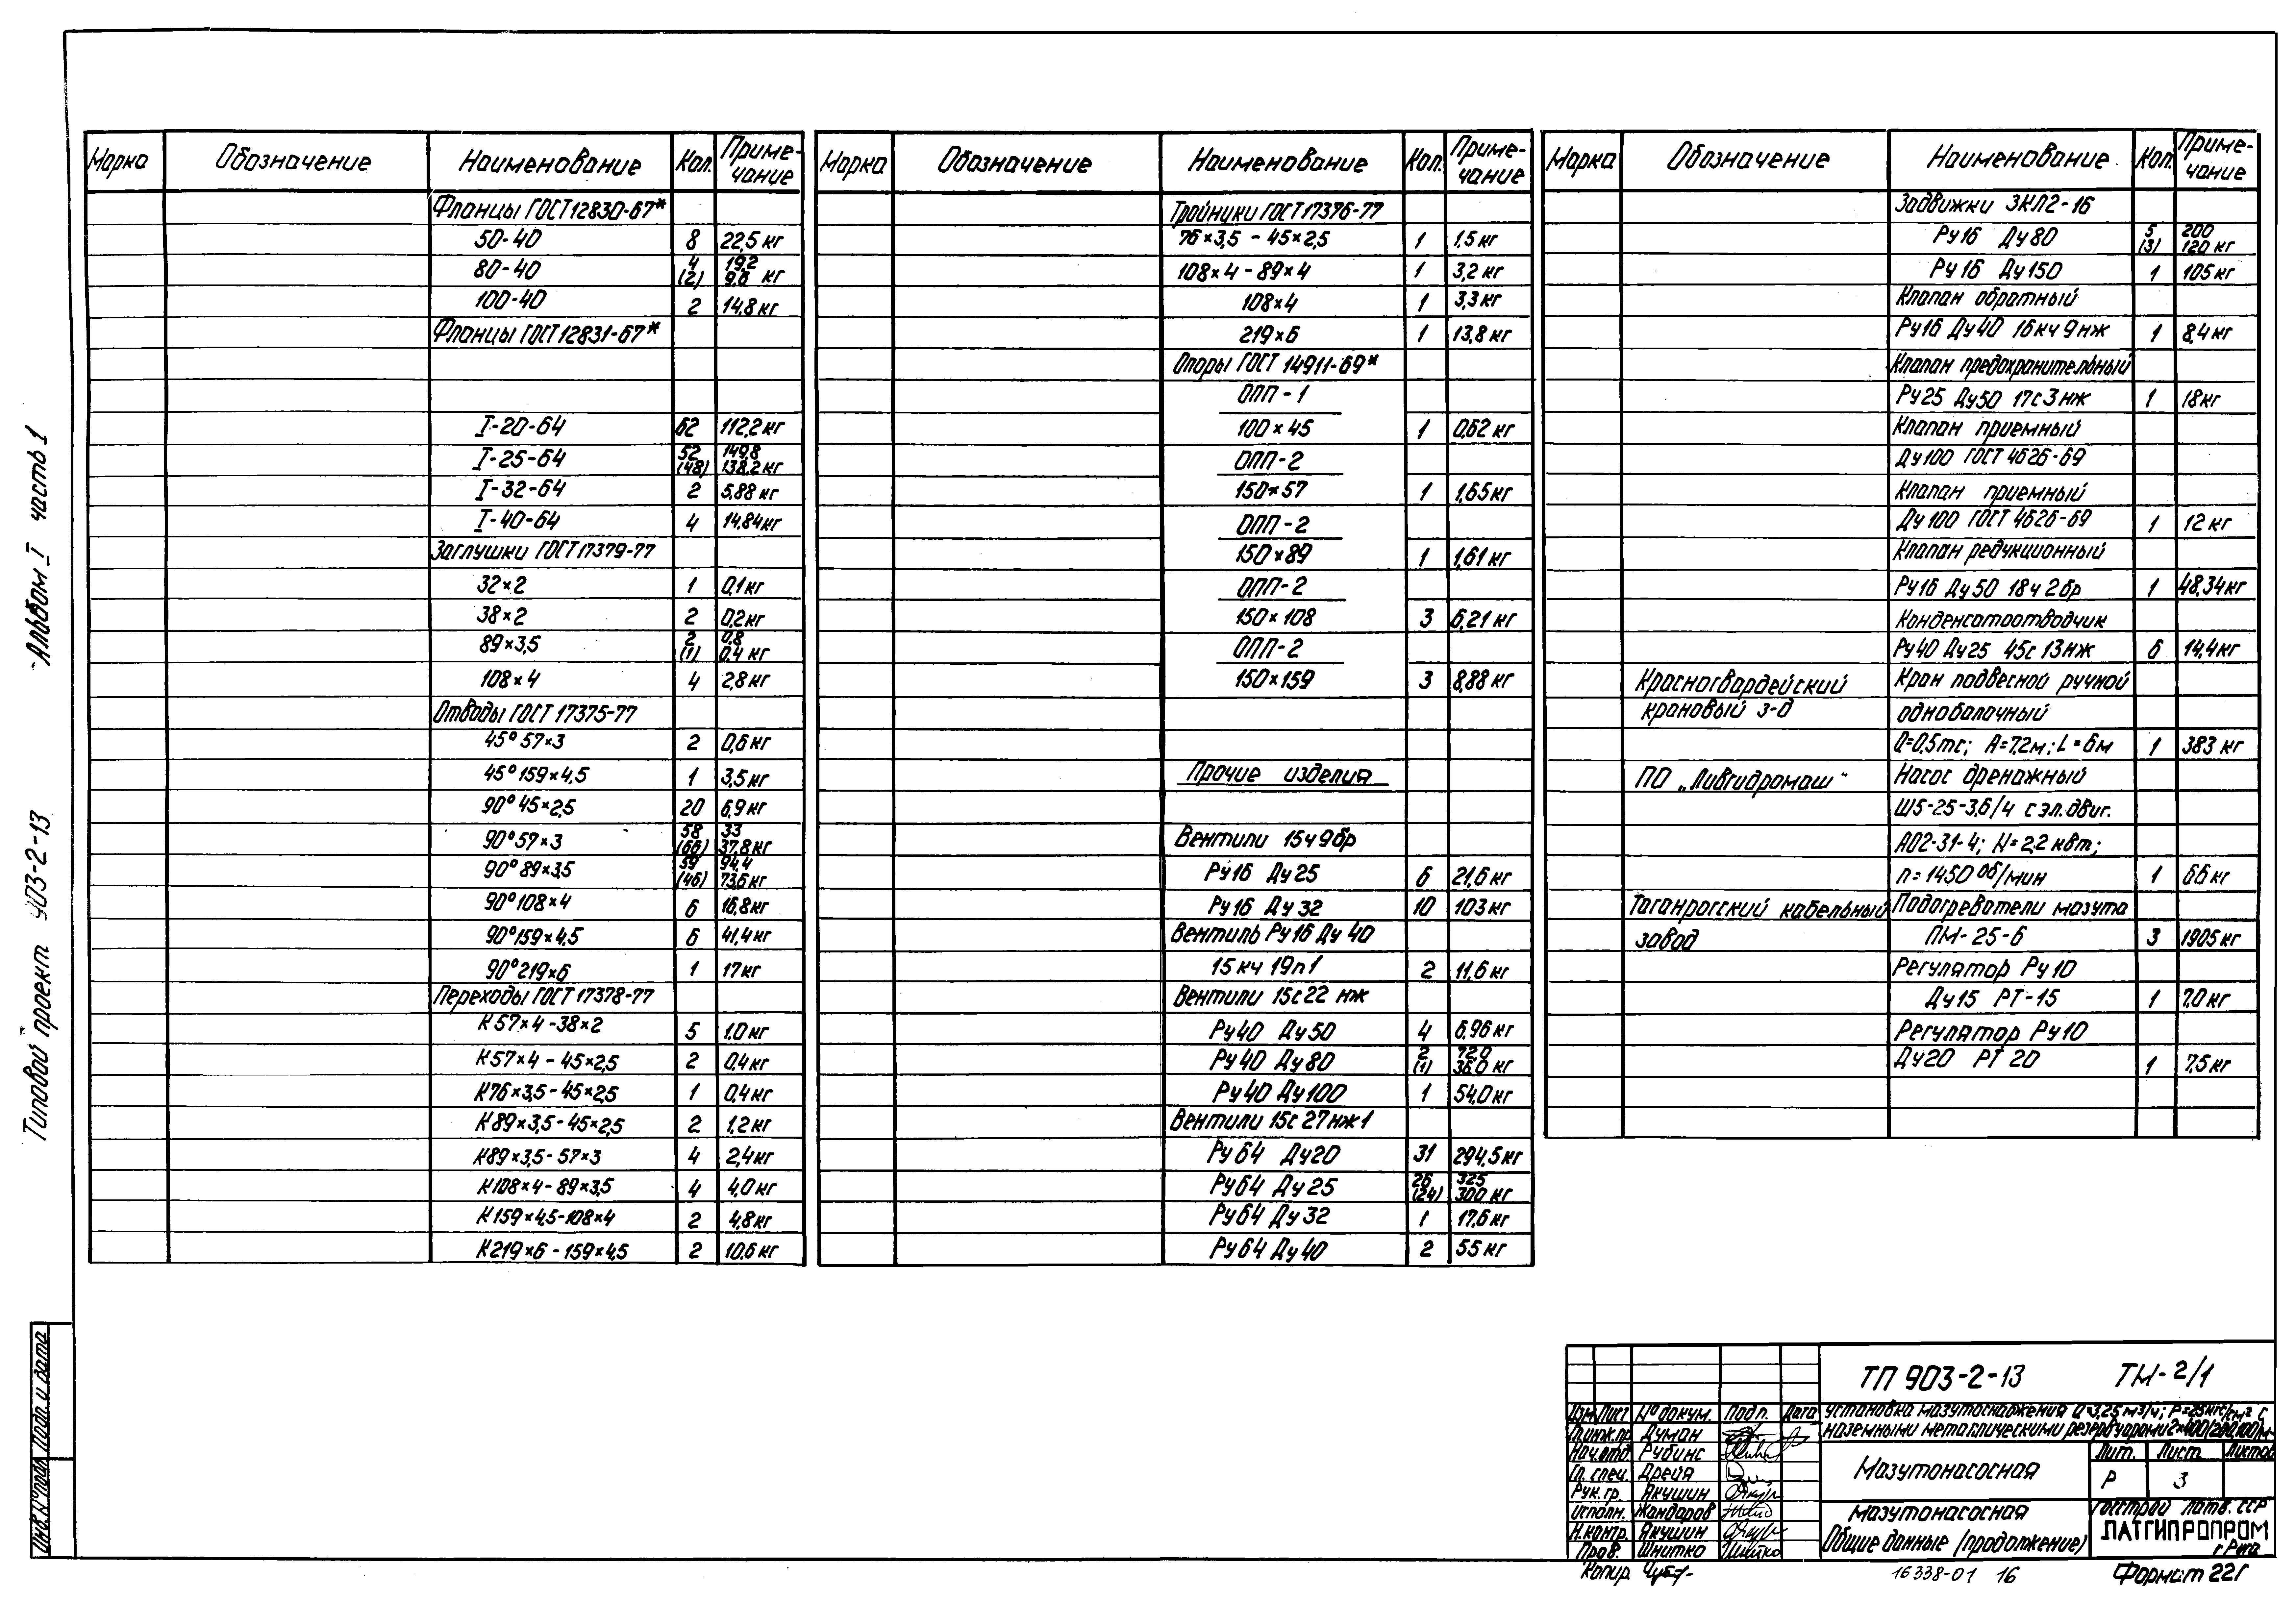 Альбом I часть 1
Типовой проект 903-2-13
Инв. № подл. Подп. и дата
Марка Обозначение Наименование Кол. Примечание
Фланцы ГОСТ 12830-67*
50-40 8 22,5 кг
80-40 4 (2) 19,2 9,6 кг
100-40 2 14,8 кг
Фланцы ГОСТ 12831-67*
I-20-64 62 112,2 кг
I-25-64 52 (48) 149,8 138,2 кг
I-32-64 2 5,88 кг
I-40-64 4 14,84 кг
Заглушки ГОСТ 17379-77
32×2 1 0,1 кг
38×2 2 0,2 кг
89×3,5 2 (1) 0,8 0,4 кг
108×4 4 2,8 кг
Отводы ГОСТ 17375-77
45° 57×3 2 0,6 кг
45° 159×4,5 1 3,5 кг
90° 45×2,5 20 6,9 кг
90° 57×3 58 (66) 33 37,8 кг
90° 89×3,5 59 (46) 94,4 73,6 кг
90° 108×4 6 16,8 кг
90° 159×4,5 6 41,4 кг
90° 219×6 1 17 кг
Переходы ГОСТ 17378-77
К 57×4-38×2 5 1,0 кг
К 57×4 - 45×2,5 2 0,4 кг
К76×3,5-45×2,5 1 0,4 кг
К 89×3,5-45×2,5 2 1,2 кг
К89×3,5-57×3 4 2,4 кг
К108×4-89×3,5 4 4,0 кг
К159×4,5-108×4 2 4,8 кг
К219×6-159×4,5 2 10,6 кг
Марка Обозначение Наименование Кол. Примечание
Тройники ГОСТ 17376-77
76×3,5 - 45×2,5 1 1,5 кг
108×4-89×4 1 3,2 кг
108×4 1 3,3 кг
219×6 1 13,8 кг
Опоры ГОСТ 14911-69*
ОПП-1
100×45 1 0,62 кг
ОПП-2
150×57 1 1,65 кг
ОПП-2
150×89 1 1,61 кг
ОПП-2
150×108 3 6,21 кг
ОПП-2
150×159 3 8,88 кг
Прочие изделия
Вентили 15ч9бр
Ру16 Ду25 6 21,6 кг
Ру16 Ду32 10 103 кг
Вентиль Ру16 Ду 40
15 кч 19п1 2 11,6 кг
Вентили 15с22 нж
Ру40 Ду50 4 6,96 кг
Ру40 Ду80 2 (1) 72,0 36,0 кг
Ру40 Ду100 1 54,0 кг
Вентили 15с27нж1
Ру64 Ду20 31 294,5 кг
Ру64 Ду25 26 (24) 325 300 кг
Ру64 Ду32 1 17,6 кг
Ру64 Ду40 2 55 кг
Марка Обозначение Наименование Кол. Примечание
Задвижки ЗКЛ2-16
Ру16 Ду80 5 (3) 200 120 кг
Ру16 Ду150 1 105 кг
Клапан обратный
Ру16 Ду40 16кч9нж 1 8,4 кг
Клапан предохранительный
Ру25 Ду50 17с3нж 1 18 кг
Клапан приемный
Ду100 ГОСТ 4626-69
Клапан приемный
Ду100 ГОСТ 4626-69 1 12 кг
Клапан редукционный
Ру16 Ду50 18ч2бр 1 48,34 кг
Конденсатоотводчик
Ру40 Ду25 45с13нж 6 14,4 кг
Красногвардейский Кран подвесной ручной
крановый з-д однобалочный
Q=0,5тс; А=7,2м; L=6м 1 383 кг
ПО „Ливгидромаш" Насос дренажный
Ш5-25-3,6/4 с эл.двиг.
АО2-31-4; N=2,2 квт;
n=1450 об/мин 1 66 кг
Таганрогский кабельный Подогреватели мазута
завод ПМ-25-6 3 1905 кг
Регулятор Ру10
Ду15 РТ-15 1 7,0 кг
Регулятор Ру10
Ду20 РТ 20 1 7,5 кг
ТП 903-2-13 ТМ-2/1
Изм Лист № докум. Подп. Дата
Установка мазутоснабжения Q=3,25 м³/ч; P=25кгс/см² с
наземными металлическими резервуарами 2×400(200,100)м³
Гл.инж.пр. Думан
Нач.отд. Рубинс
Гл. спец. Дрейя
Рук. гр. Якушин
Исполн. Жандаров
Н.контр. Якушин
Пров. Шнитко
Мазутонасосная
Лит. Лист Листов
Р 3
Мазутонасосная
Общие данные (продолжение)
Госстрой Латв. ССР
ЛАТГИПРОПРОМ
г. Рига
Копир.
16338-01 16
Формат 22Г